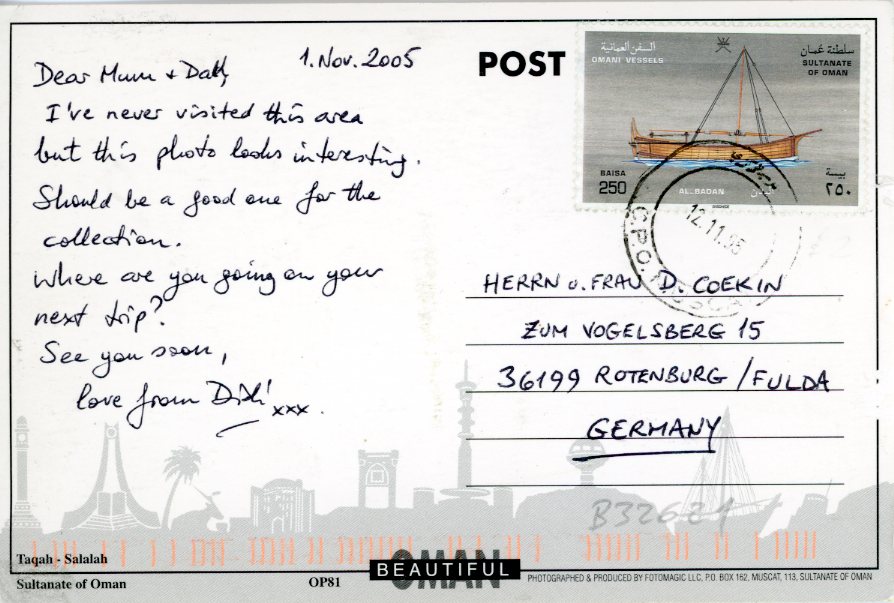 1. Nov. 2005
Dear Mum + Dad,
I've never visited this area
but this photo looks interesting.
Should be a good one for the
collection.
Where are you going on your
next trip?
See you soon,
love from Didi xxx.
POST
السفن العمانية
OMANI VESSELS
سلطنة عمان
SULTANATE
OF OMAN
BAISA
250
AL BADAN
بيسة
٢٥٠
12.11.05
G.P.O. MUSCA
HERRN u. FRAU D. COEKIN
ZUM VOGELSBERG 15
36199 ROTENBURG / FULDA
GERMANY
B32621
Taqah - Salalah
Sultanate of Oman
OP81
BEAUTIFUL
OMAN
PHOTOGRAPHED & PRODUCED BY FOTOMAGIC LLC, P.O. BOX 162, MUSCAT, 113, SULTANATE OF OMAN